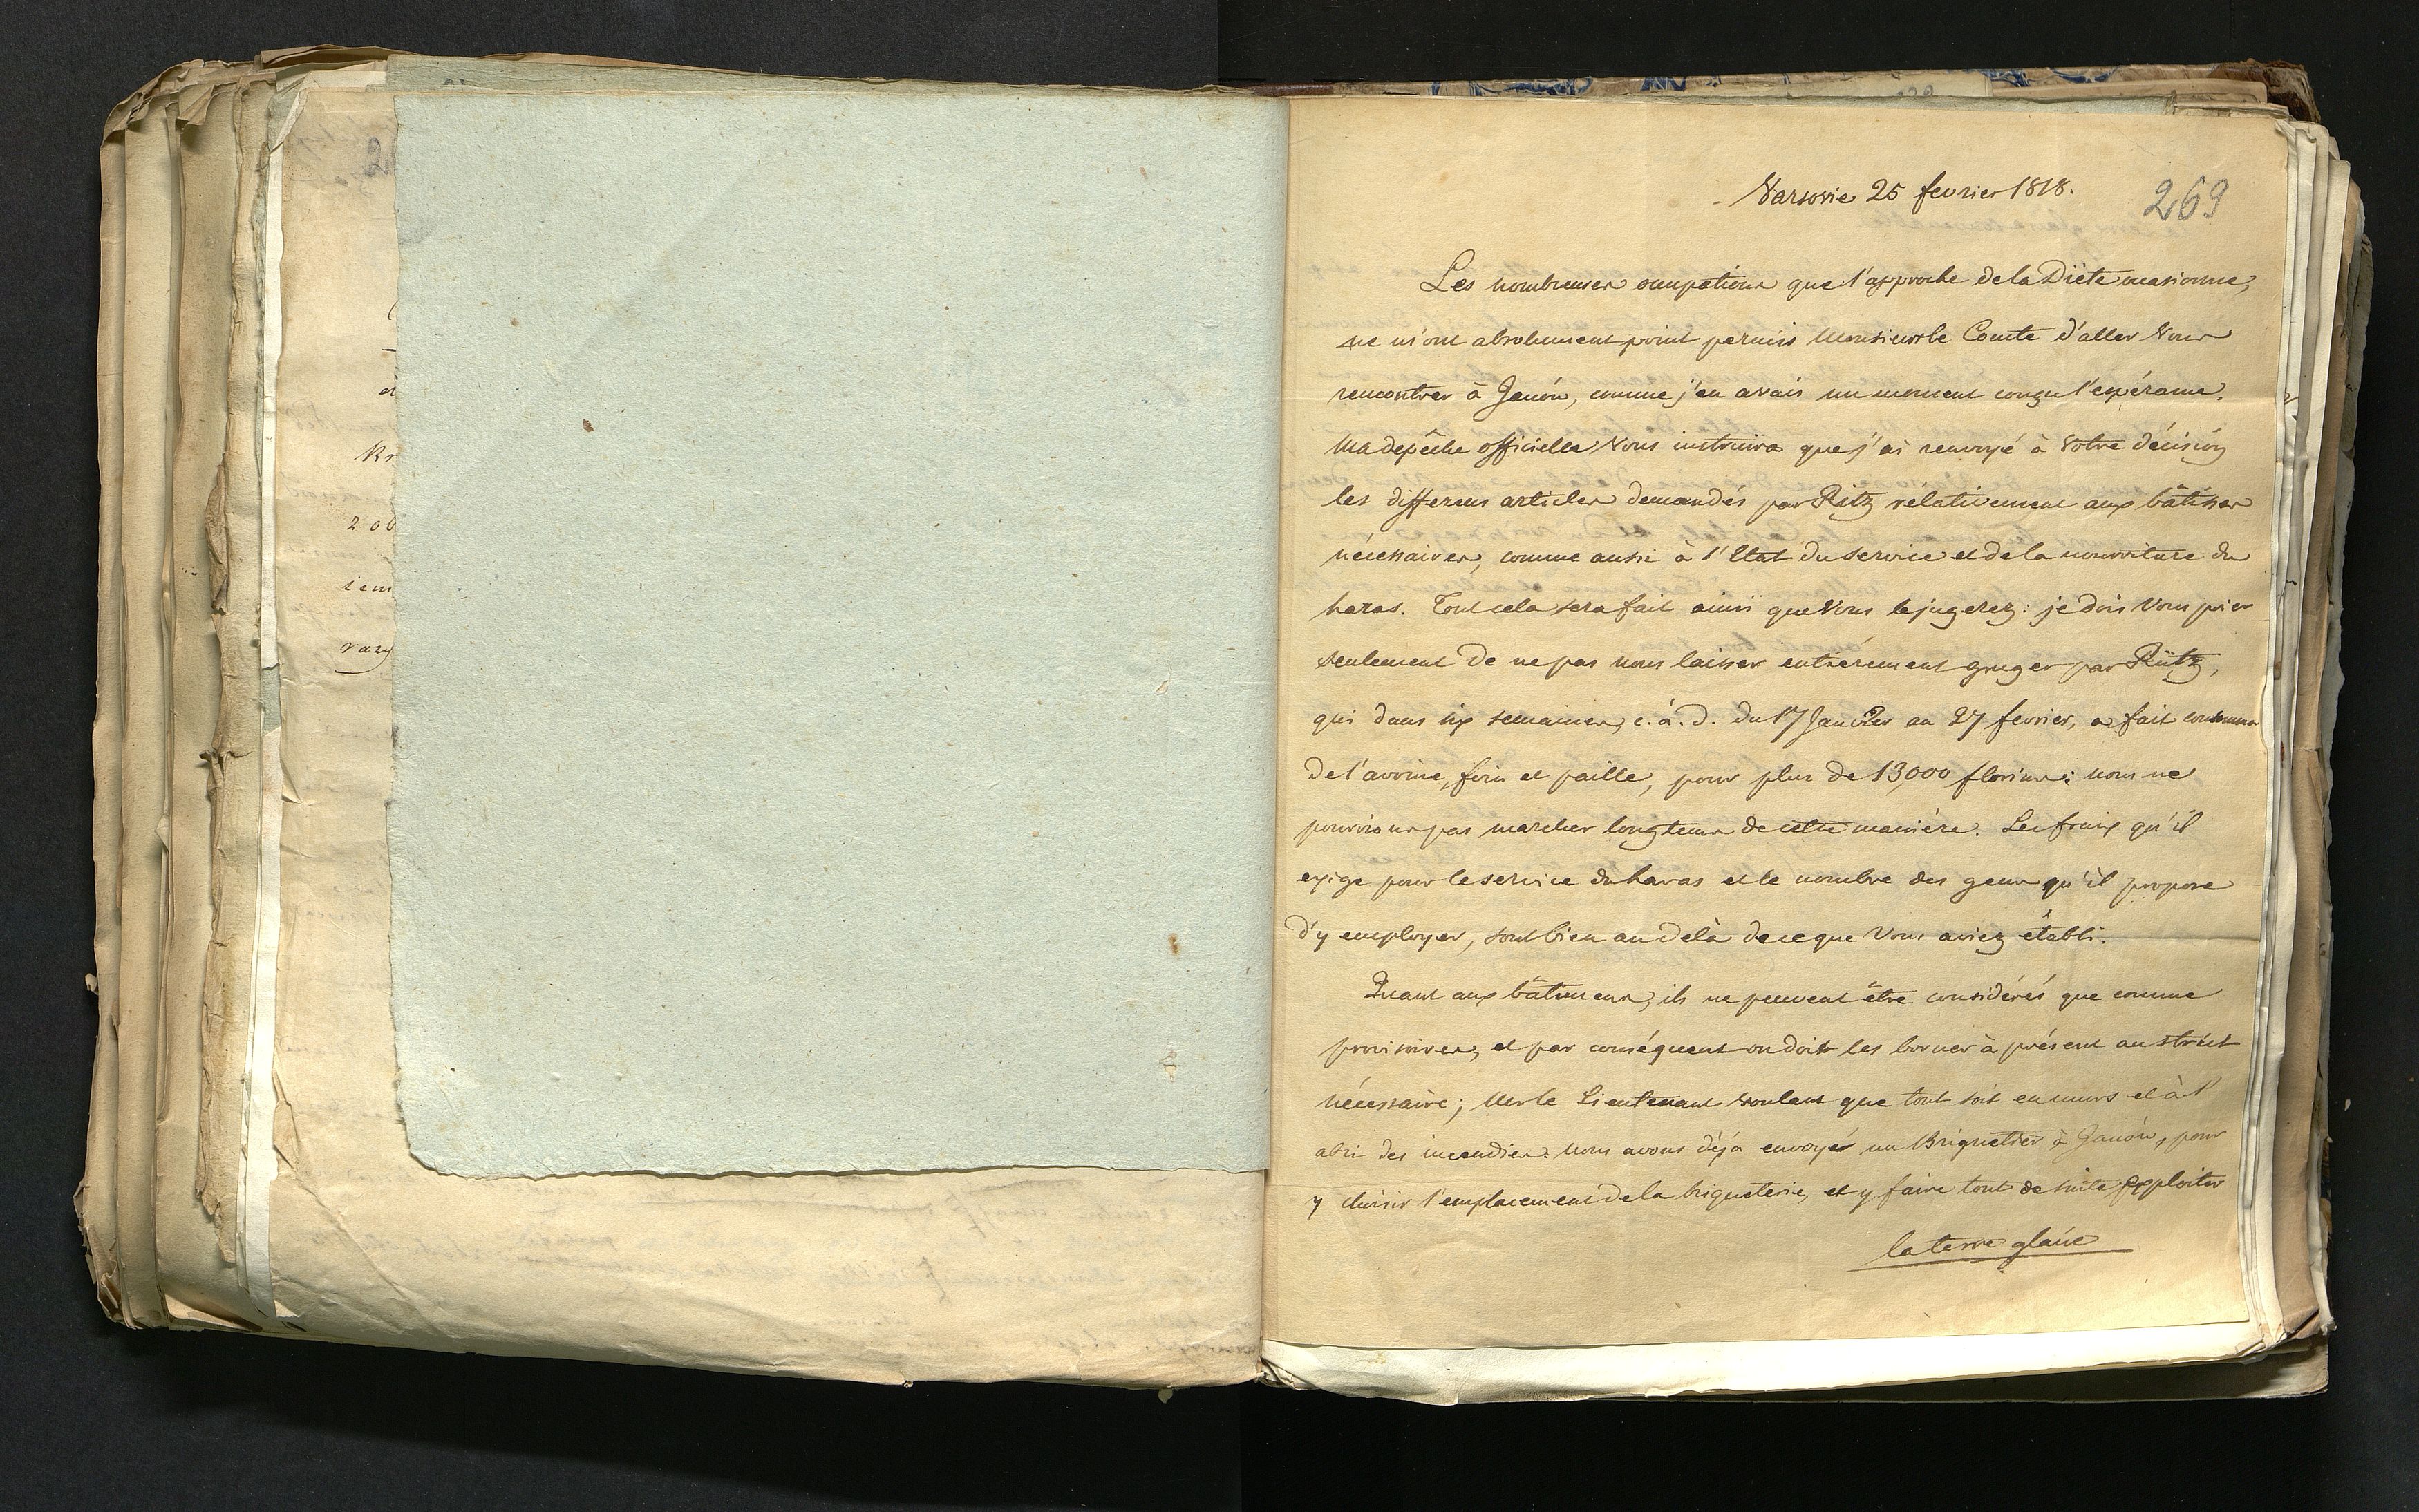 2
et
Kr
2 ob
iem
razy
Varsovie 25 fevrier 1818.
269
Les nombreuses ocupations que l'approche de la Diète ocasionne,
ne m'ont absolument point permis Monsieur le Comte d'aller Vous
rencontrer à Janów, comme j'en avais un moment conçu l'espérance.
Ma depêche officielle Vous instruira que j'ai renvoyé à Votre décision
les differens articles demandés par Ritz rélativement aux bâtisses
nécessaires, comme aussi à l'Etat du service et de la nourriture du
haras. Tout cela sera fait ainsi que Vous le jugerez: je dois Vous prier
seulement de ne pas nous laisser entièrement gruger par Ritz,
qui dans six semaines, c. à. d. du 17 Janvier au 27 fevrier, a fait consommer
de l'avoine, foin et paille, pour plus de 13,000 florins: nous ne
pourrions pas marcher longtems de cette manière. Les fraix qu'il
exige pour le service du haras et le nombre des gens qu'il propose
d'y employer, sont bien au delà de ce que Vous aviez établi.
Quant aux bâtimens, ils ne peuvent être considérés que comme
provisoires, et par conséquent on doit les borner à présent au strict
nécessaire; Mr le Lieutenant voulant que tout soit en murs et à l'
abri des incendies. Nous avons déjà envoyé un Briquetier à Janów, pour
y choisir l'emplacement de la briqueterie, et y faire tout de suite exploiter
la terre glaise